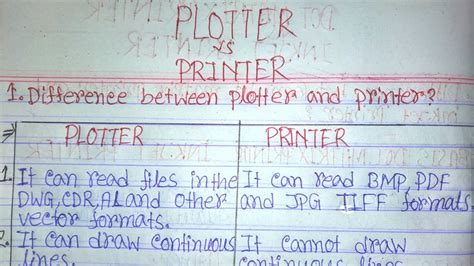 PLOTTER
VS
PRINTER
1. Difference between plotter and printer?
⇒ PLOTTER PRINTER
1. It can read files in the It can read BMP, PDF
DWG, CDR, AI and other and JPG TIFF formats.
vector formats.
2. It can draw continuous It cannot draw
lines. continuous lines